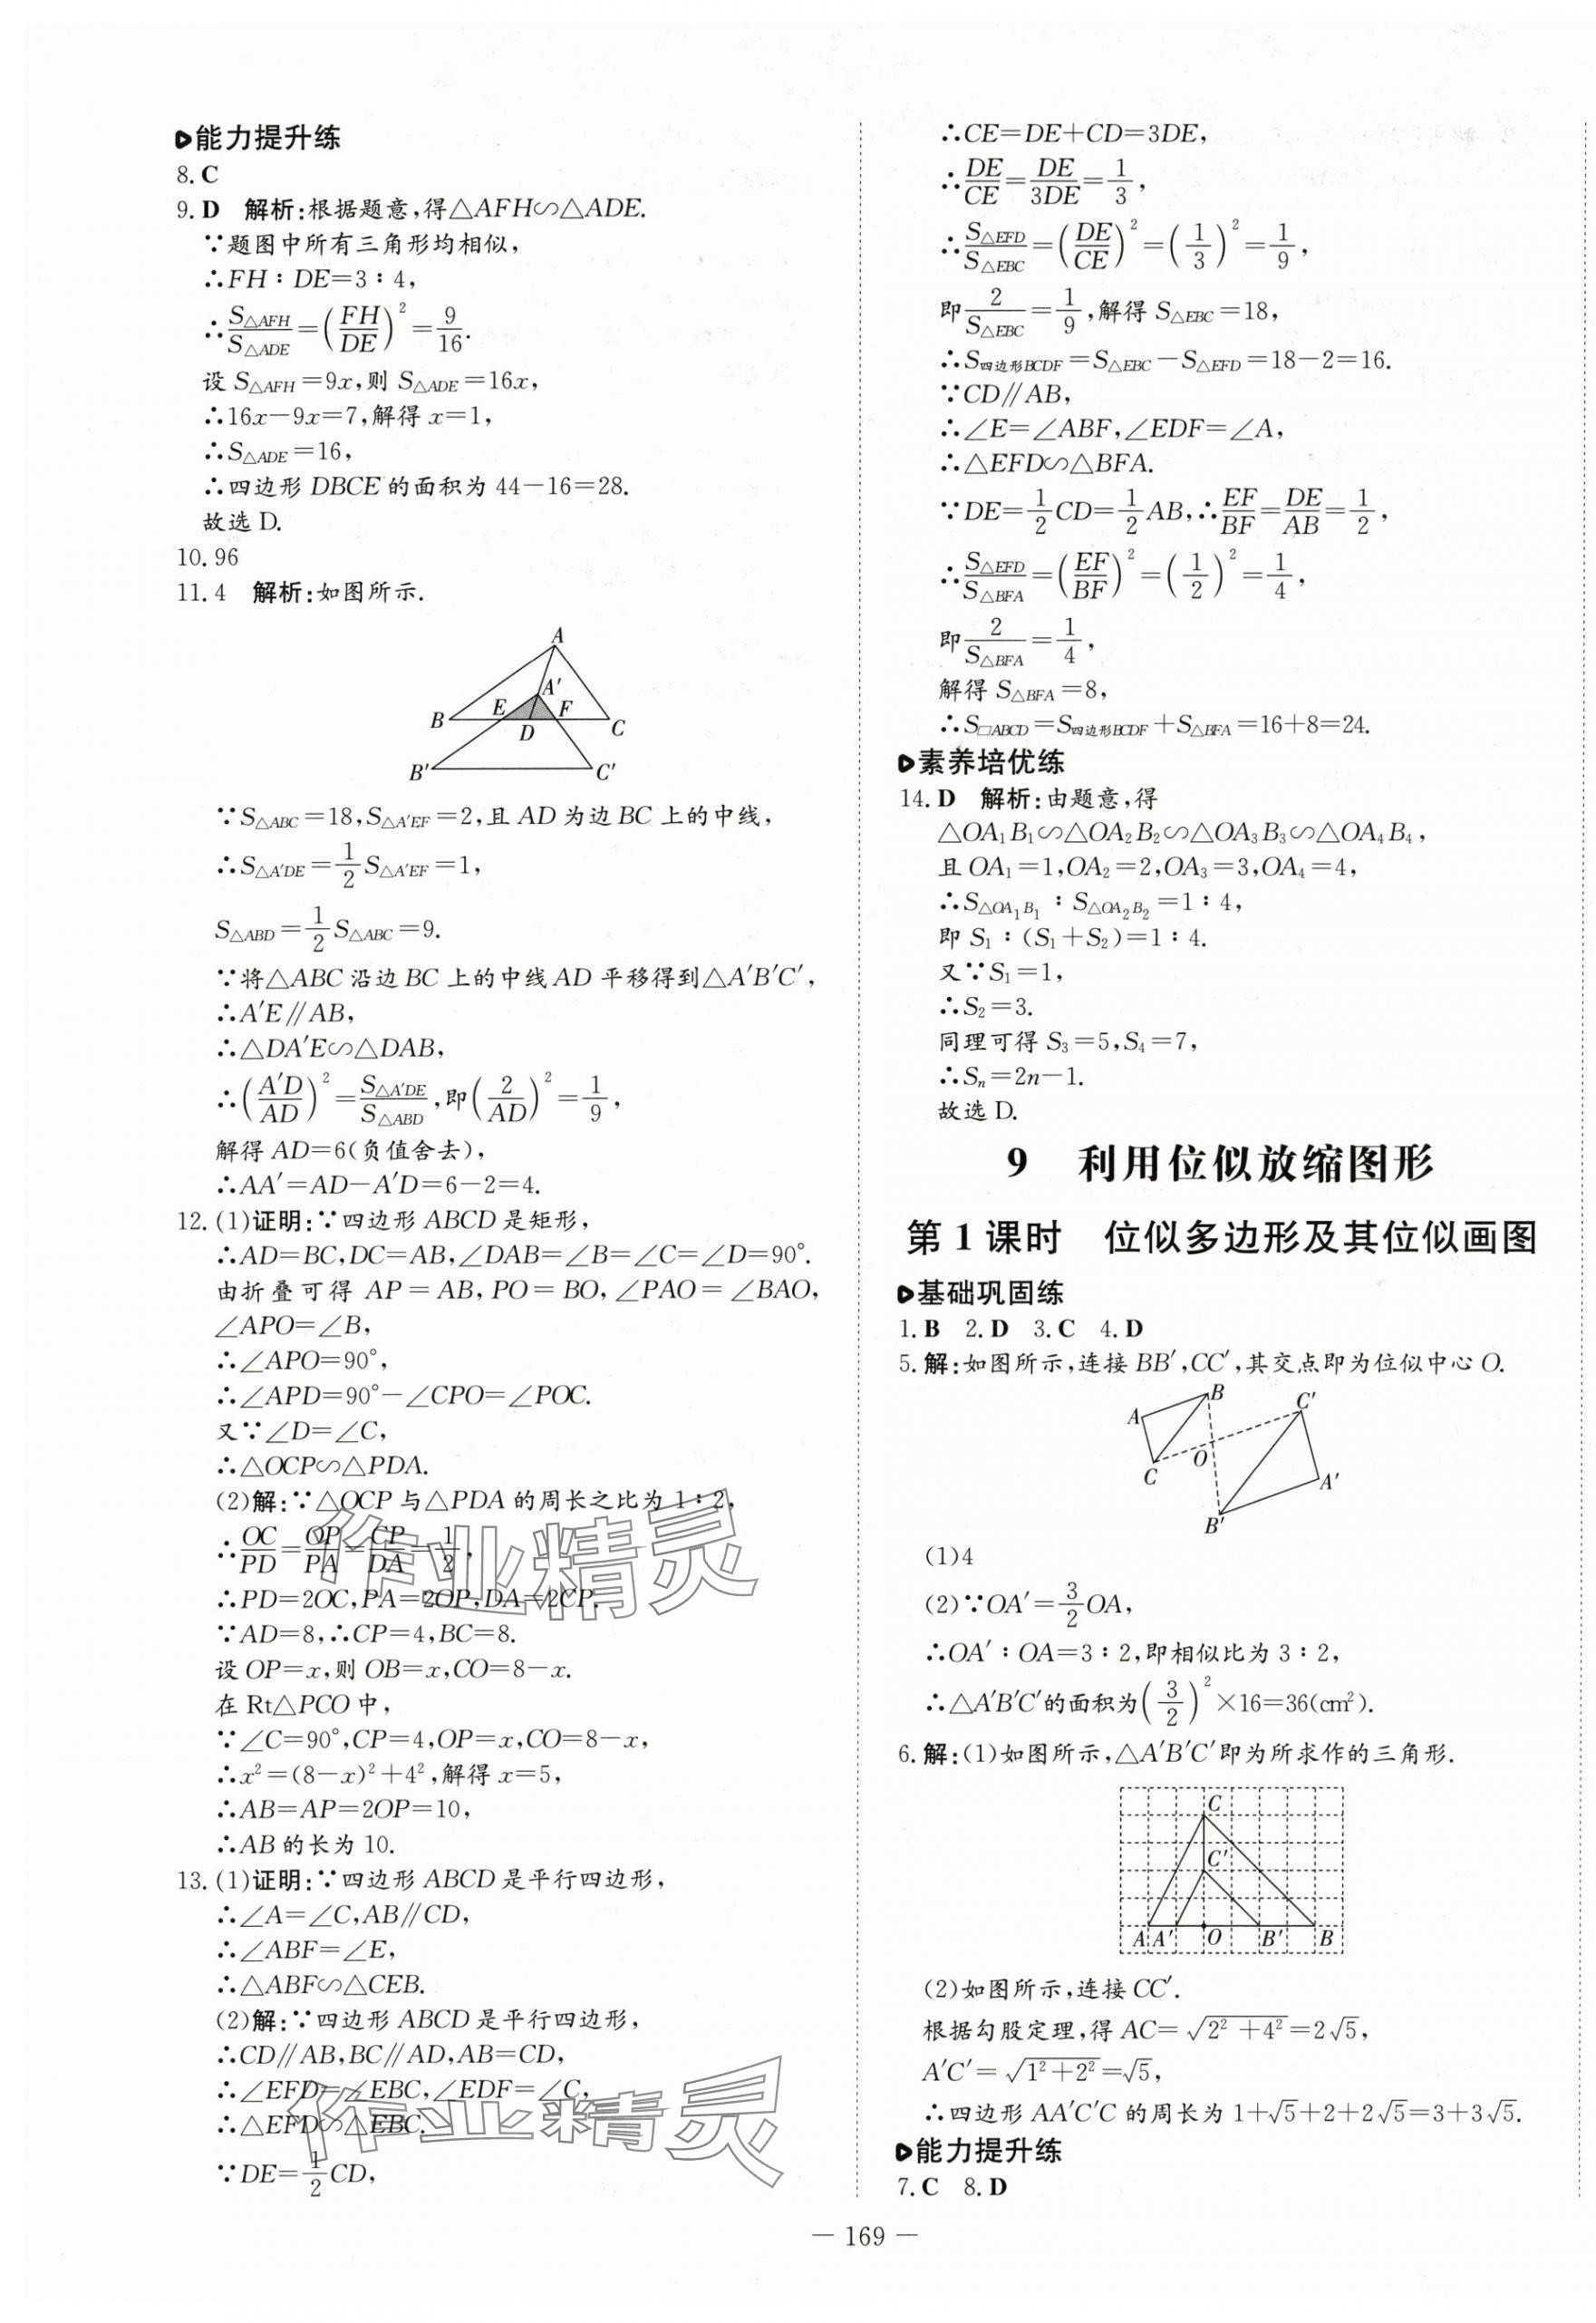 能力提升练
8. C
9. D 解析:根据题意,得△AFH∽△ADE.
∵题图中所有三角形均相似,
∴FH∶DE=3∶4,
∴S△AFH/S△ADE=(FH/DE)²=9/16.
设 S△AFH=9x,则 S△ADE=16x,
∴16x-9x=7,解得 x=1,
∴S△ADE=16,
∴四边形 DBCE 的面积为 44-16=28.
故选 D.
10. 96
11. 4 解析:如图所示.
A
A'
B E F C
D
B' C'
∵S△ABC=18,S△A'EF=2,且 AD 为边 BC 上的中线,
∴S△A'DE=1/2 S△A'EF=1,
S△ABD=1/2 S△ABC=9.
∵将△ABC 沿边 BC 上的中线 AD 平移得到△A'B'C',
∴A'E∥AB,
∴△DA'E∽△DAB,
∴(A'D/AD)²=S△A'DE/S△ABD,即(2/AD)²=1/9,
解得 AD=6(负值舍去),
∴AA'=AD-A'D=6-2=4.
12. (1)证明:∵四边形 ABCD 是矩形,
∴AD=BC,DC=AB,∠DAB=∠B=∠C=∠D=90°.
由折叠可得 AP=AB,PO=BO,∠PAO=∠BAO,
∠APO=∠B,
∴∠APO=90°,
∴∠APD=90°-∠CPO=∠POC.
又∵∠D=∠C,
∴△OCP∽△PDA.
(2)解:∵△OCP 与△PDA 的周长之比为 1∶2,
∴OC/PD=OP/PA=CP/DA=1/2,
∴PD=2OC,PA=2OP,DA=2CP.
∵AD=8,∴CP=4,BC=8.
设 OP=x,则 OB=x,CO=8-x.
在 Rt△PCO 中,
∵∠C=90°,CP=4,OP=x,CO=8-x,
∴x²=(8-x)²+4²,解得 x=5,
∴AB=AP=2OP=10,
∴AB 的长为 10.
13. (1)证明:∵四边形 ABCD 是平行四边形,
∴∠A=∠C,AB∥CD,
∴∠ABF=∠E,
∴△ABF∽△CEB.
(2)解:∵四边形 ABCD 是平行四边形,
∴CD∥AB,BC∥AD,AB=CD,
∴∠EFD=∠EBC,∠EDF=∠C,
∴△EFD∽△EBC.
∵DE=1/2 CD,
∴CE=DE+CD=3DE,
∴DE/CE=DE/3DE=1/3,
∴S△EFD/S△EBC=(DE/CE)²=(1/3)²=1/9,
即2/S△EBC=1/9,解得 S△EBC=18,
∴S四边形BCDF=S△EBC-S△EFD=18-2=16.
∵CD∥AB,
∴∠E=∠ABF,∠EDF=∠A,
∴△EFD∽△BFA.
∵DE=1/2 CD=1/2 AB,∴EF/BF=DE/AB=1/2,
∴S△EFD/S△BFA=(EF/BF)²=(1/2)²=1/4,
即2/S△BFA=1/4,
解得 S△BFA=8,
∴S▱ABCD=S四边形BCDF+S△BFA=16+8=24.
素养培优练
14. D 解析:由题意,得
△OA₁B₁∽△OA₂B₂∽△OA₃B₃∽△OA₄B₄,
且 OA₁=1,OA₂=2,OA₃=3,OA₄=4,
∴S△OA₁B₁∶S△OA₂B₂=1∶4,
即 S₁∶(S₁+S₂)=1∶4.
又∵S₁=1,
∴S₂=3.
同理可得 S₃=5,S₄=7,
∴Sₙ=2n-1.
故选 D.
9 利用位似放缩图形
第 1 课时 位似多边形及其位似画图
基础巩固练
1. B 2. D 3. C 4. D
5. 解:如图所示,连接 BB',CC',其交点即为位似中心 O.
B C'
A
O
C A'
B'
(1)4
(2)∵OA'=3/2 OA,
∴OA'∶OA=3∶2,即相似比为 3∶2,
∴△A'B'C'的面积为(3/2)²×16=36(cm²).
6. 解:(1)如图所示,△A'B'C'即为所求作的三角形.
C
C'
A A' O B' B
(2)如图所示,连接 CC'.
根据勾股定理,得 AC=√(2²+4²)=2√5,
A'C'=√(1²+2²)=√5,
∴四边形 AA'C'C 的周长为 1+√5+2+2√5=3+3√5.
能力提升练
7. C 8. D
— 169 —
作业精灵
作业精灵